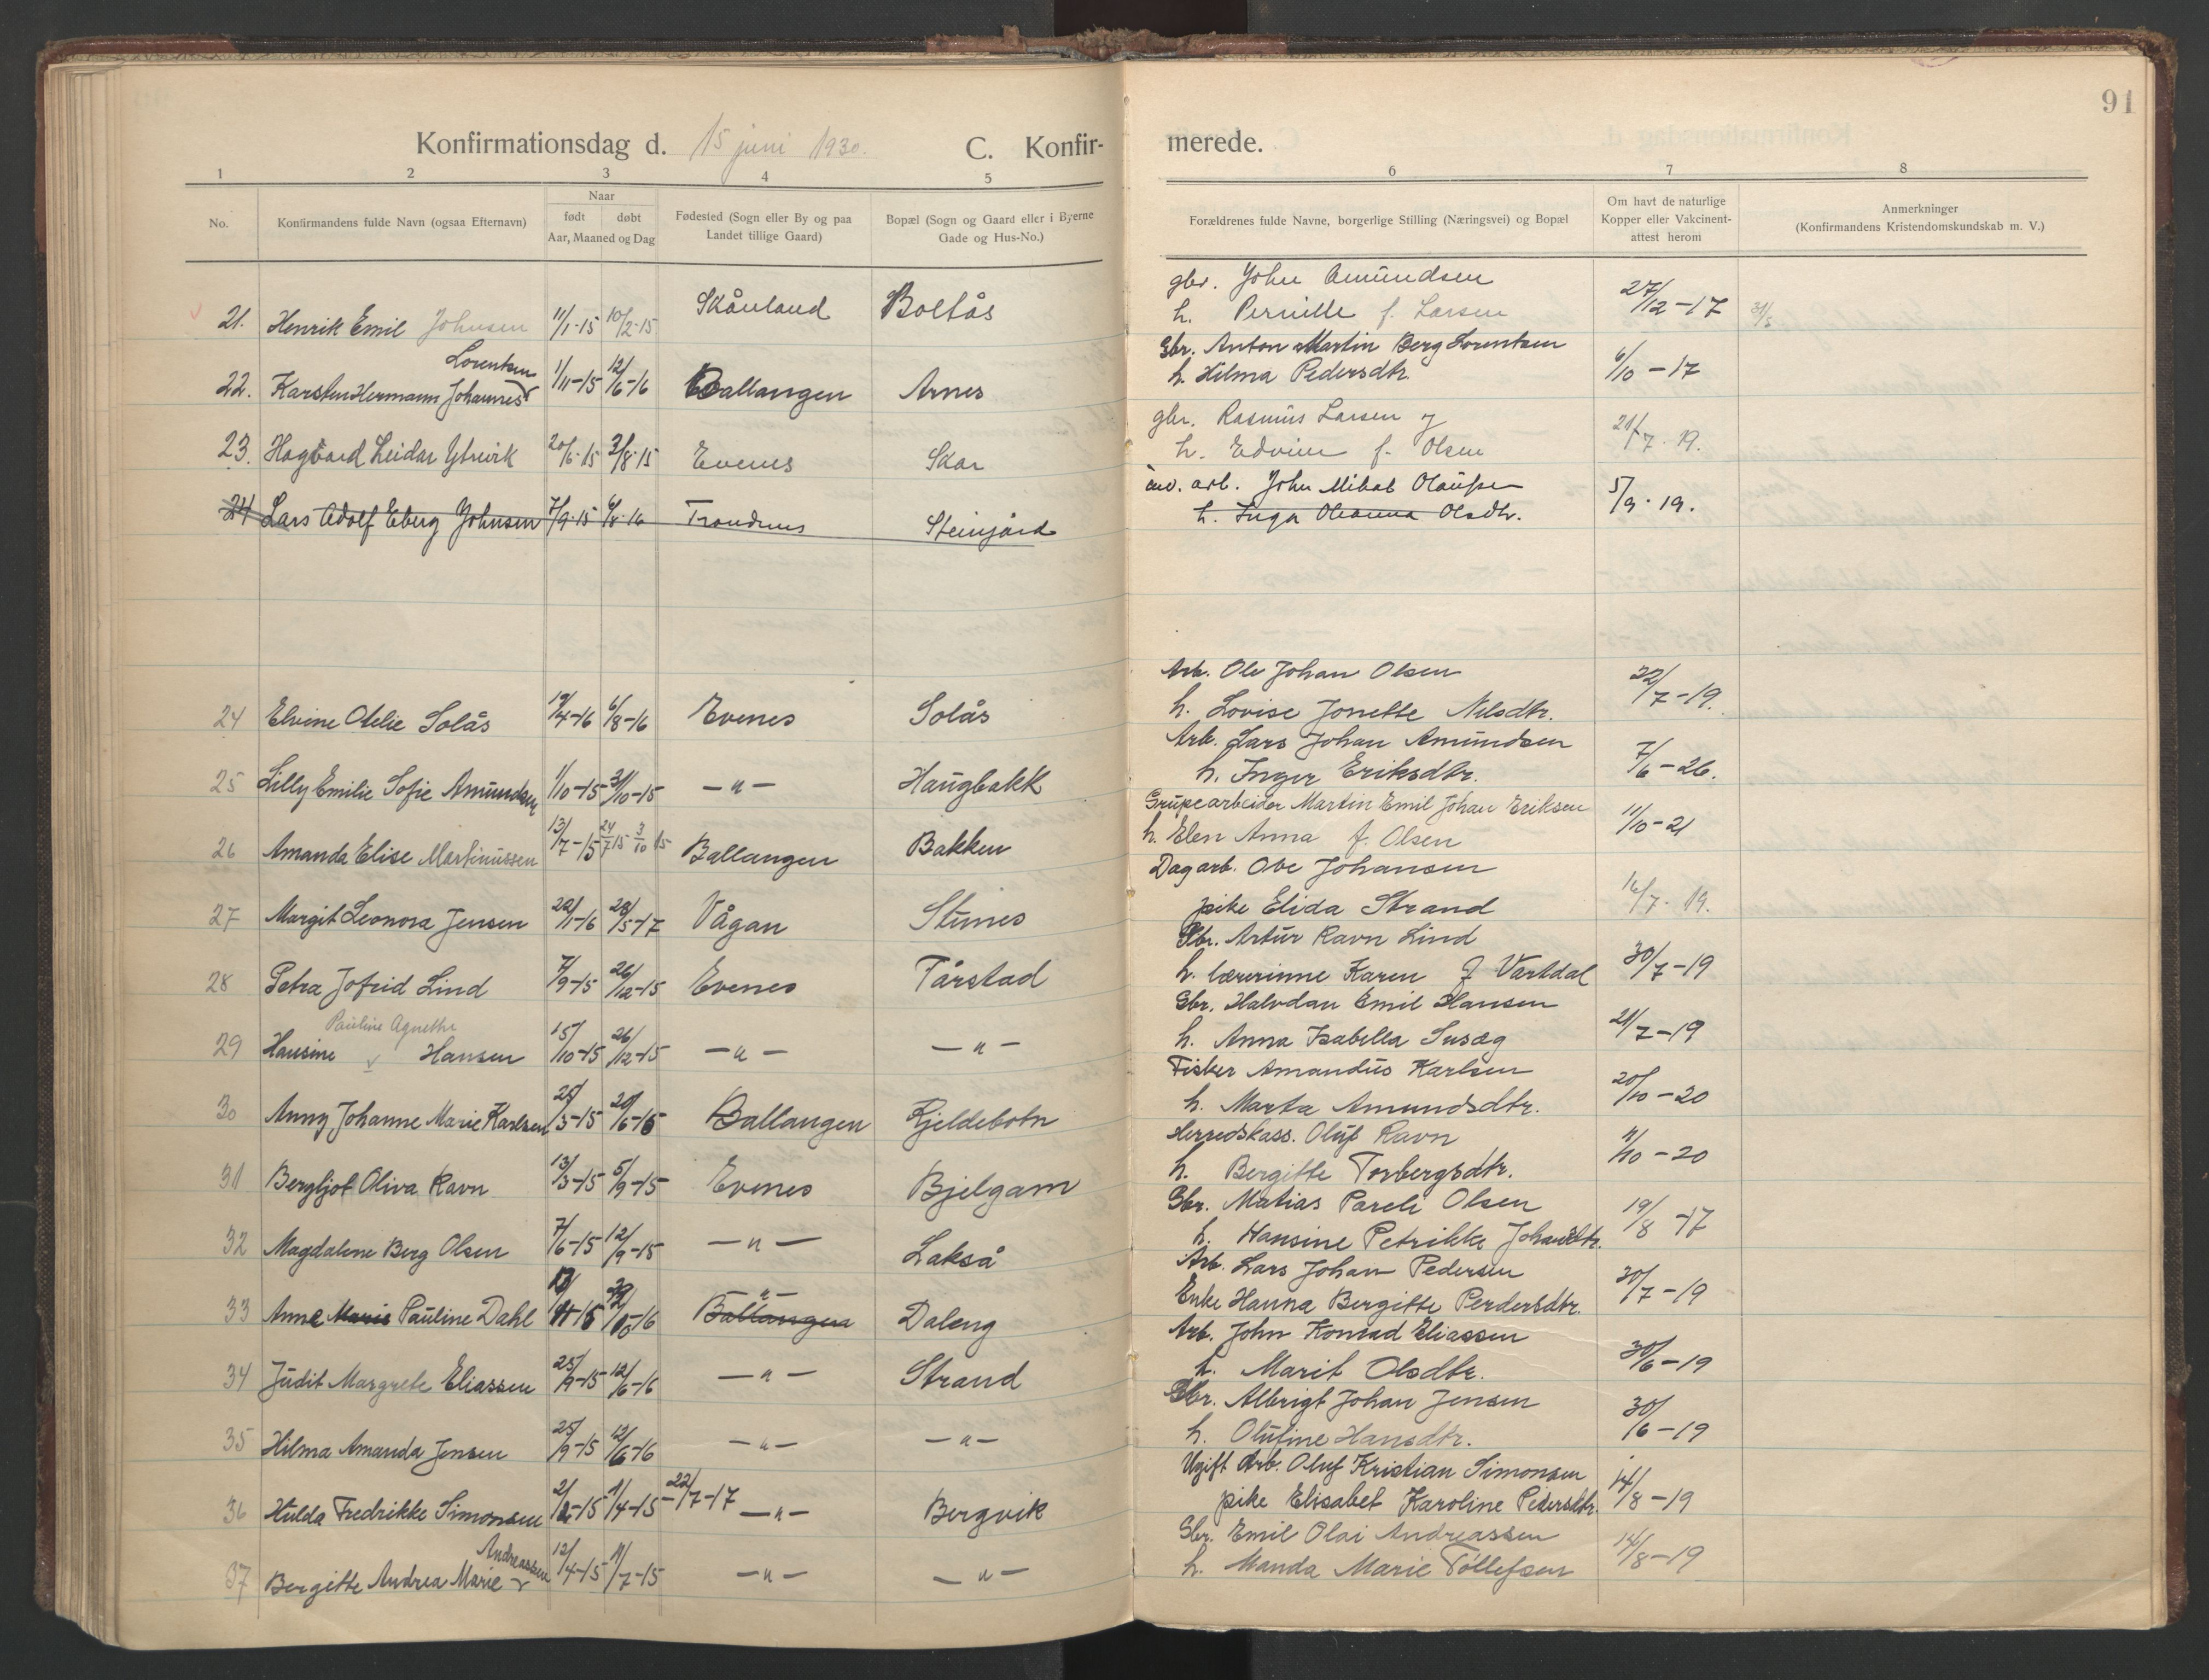 91
Konfirmationsdag d. 15 juni 1930. C. Konfirmerede.
1 2 3 4 5 6 7 8
No. Konfirmandens fulde Navn (ogsaa Efternavn) Naar født døbt Aar, Maaned og Dag Fødested (Sogn eller By og paa Landet tillige Gaard) Bopæl (Sogn og Gaard eller i Byerne Gade og Hus-No.) Forældrenes fulde Navne, borgerlige Stilling (Næringsvei) og Bopæl Om havt de naturlige Kopper eller Vakcinent-attest herom Anmerkninger (Konfirmandens Kristendomskundskab m. V.)
gbr. John Amundsen
21. Henrik Emil Johnsen 11/1-15 10/2-15 Skånland Boltås h. Pernille f. Larsen 27/12-17
Lorentsen Gbr. Anton Martin Berg Lorentsen
22. Karsten Hermann Johannes 1/11-15 12/6-16 Ballangen Arnes h. Hilma Pedersdtr. 6/10-17
gbr. Rasmus Larsen og
23. Hagbard Leidar Ytrevik 20/6-15 3/8-15 Evenes Skar h. Edvine f. Olsen 21/7-19.
inv. arb. John Mikal Olaussen
24 Lars Adolf Eberg Johnsen 7/9-15 6/8-16 Trondenes Steinjord h. Inga Oleanna Olsdtr. 5/9-19.
Arb. Ole Johan Olsen
24 Elvine Otelie Solås 19/4-16 6/8-16 Evenes Solås h. Lovise Jonette Nilsdtr. 22/7-19.
Arb. Lars Johan Amundsen
25 Lilly Emilie Sofie Amundsen 1/10-15 31/10-15 -"- Haugbakk h. Inger Eriksdtr. 7/6-26.
Grupearbeider Martin Emil Johan Eriksen
26 Amanda Elise Martinussen 13/7-15 24/7 15 3/10 15 Ballangen Bakken h. Elen Anna f. Olsen 11/10-21
Dagarb. Ove Johansen
27 Margit Leonora Jensen 22/1-16 28/5-17 Vågan Stunes pike Elida Strand 16/7-19.
Gbr. Artur Ravn Lind
28 Petra Jofrid Lind 7/9-15 26/12-15 Evenes Tårstad h. lærerinne Karen f Vartdal 30/7-19
Pauline Agnethe Gbr. Halvdan Emil Hansen
29 Hansine Hansen 15/10-15 26/12-15 -"- -"- h. Anna Isabella Susæg 21/7-19
Fisker Amandus Karlsen
30 Anny Johanne Marie Karlsen 25/3-15 20/6-15 Ballangen Kjeldebotn h. Marta Amundsdtr. 20/10-20
Herredskass. Oluf Ravn
31 Bergljot Oliva Ravn 13/3-15 5/9-15 Evenes Bjelgam h. Bergitte Torbergsdtr. 11/10-20
Gbr. Matias Pareli Olsen
32 Magdalene Berg Olsen 7/6-15 12/9-15 -"- Lakså h. Hansine Petrikke Johansdtr. 19/8-17
Arb. Lars Johan Pedersen
33 Anne Marie Pauline Dahl -15 -16 -"- Ballangen Daleng Enke Hanna Bergitte Perdersdtr. 30/7-19
Arb. John Konrad Eliassen
34 Judit Margrete Eliassen 25/9-15 12/6-16 -"- Strand h. Marit Olsdtr. 30/6-19
Gbr. Albrigt Johan Jensen
35 Hilma Amanda Jensen 25/9-15 12/6-16 -"- -"- h. Olufine Hansdtr. 30/6-19
Ugift Arb. Oluf Kristian Simonsen
36 Hulda Fredrikke Simonsen 2/2-15 1/4-15 -22/7-17 -"- Bergvik pike Elisabet Karoline Pedersdtr. 14/8-19
Andreassen Gbr. Emil Olai Andreassen
37 Bergitte Andrea Marie 12/4-15 11/7-15 -"- -"- h. Manda Marie Tollefsen 14/8-19